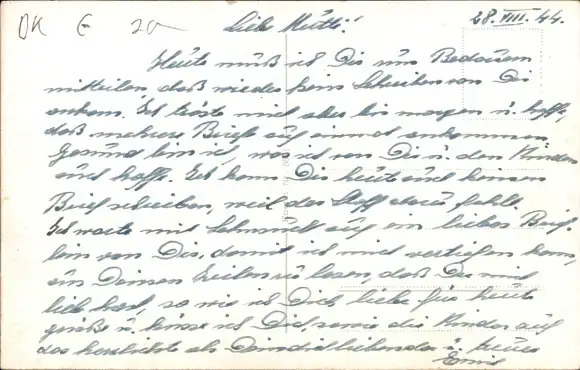 OK E 20
28. VIII. 44.
Liebe Mutti!
Heute muß ich Dir zum Bedauern
mitteilen, daß wieder kein Schreiben von Dir
ankam. Ich tröste mich aber bis morgen u. hoffe,
daß mehrere Briefe auf einmal ankommen.
Gesund bin ich, was ich von Dir u. den Kindern
auch hoffe. Ich kann Dir heute auch keinen
Brief schreiben, weil der Stoff dazu fehlt.
Ich warte mit Sehnsucht auf ein liebes Brief-
lein von Dir, damit ich mich vertiefen kann,
um Deinen Zeilen zu lesen, daß Du mich
lieb hast, so wie ich Dich liebe. Für heute
grüße u. küsse ich Dich sowie die Kinder auf
das herzlichste als Dein dich liebender u. treuer
Emil